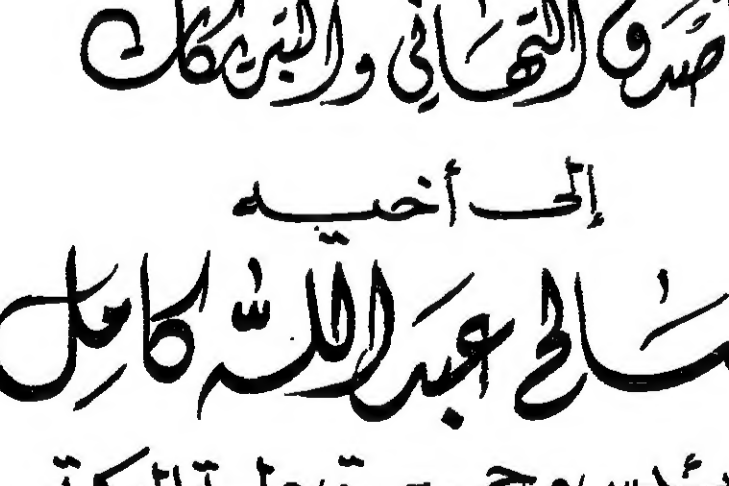 صدق التهاني والتبريكات
إلى أخيه
صالح عبدالله كامل